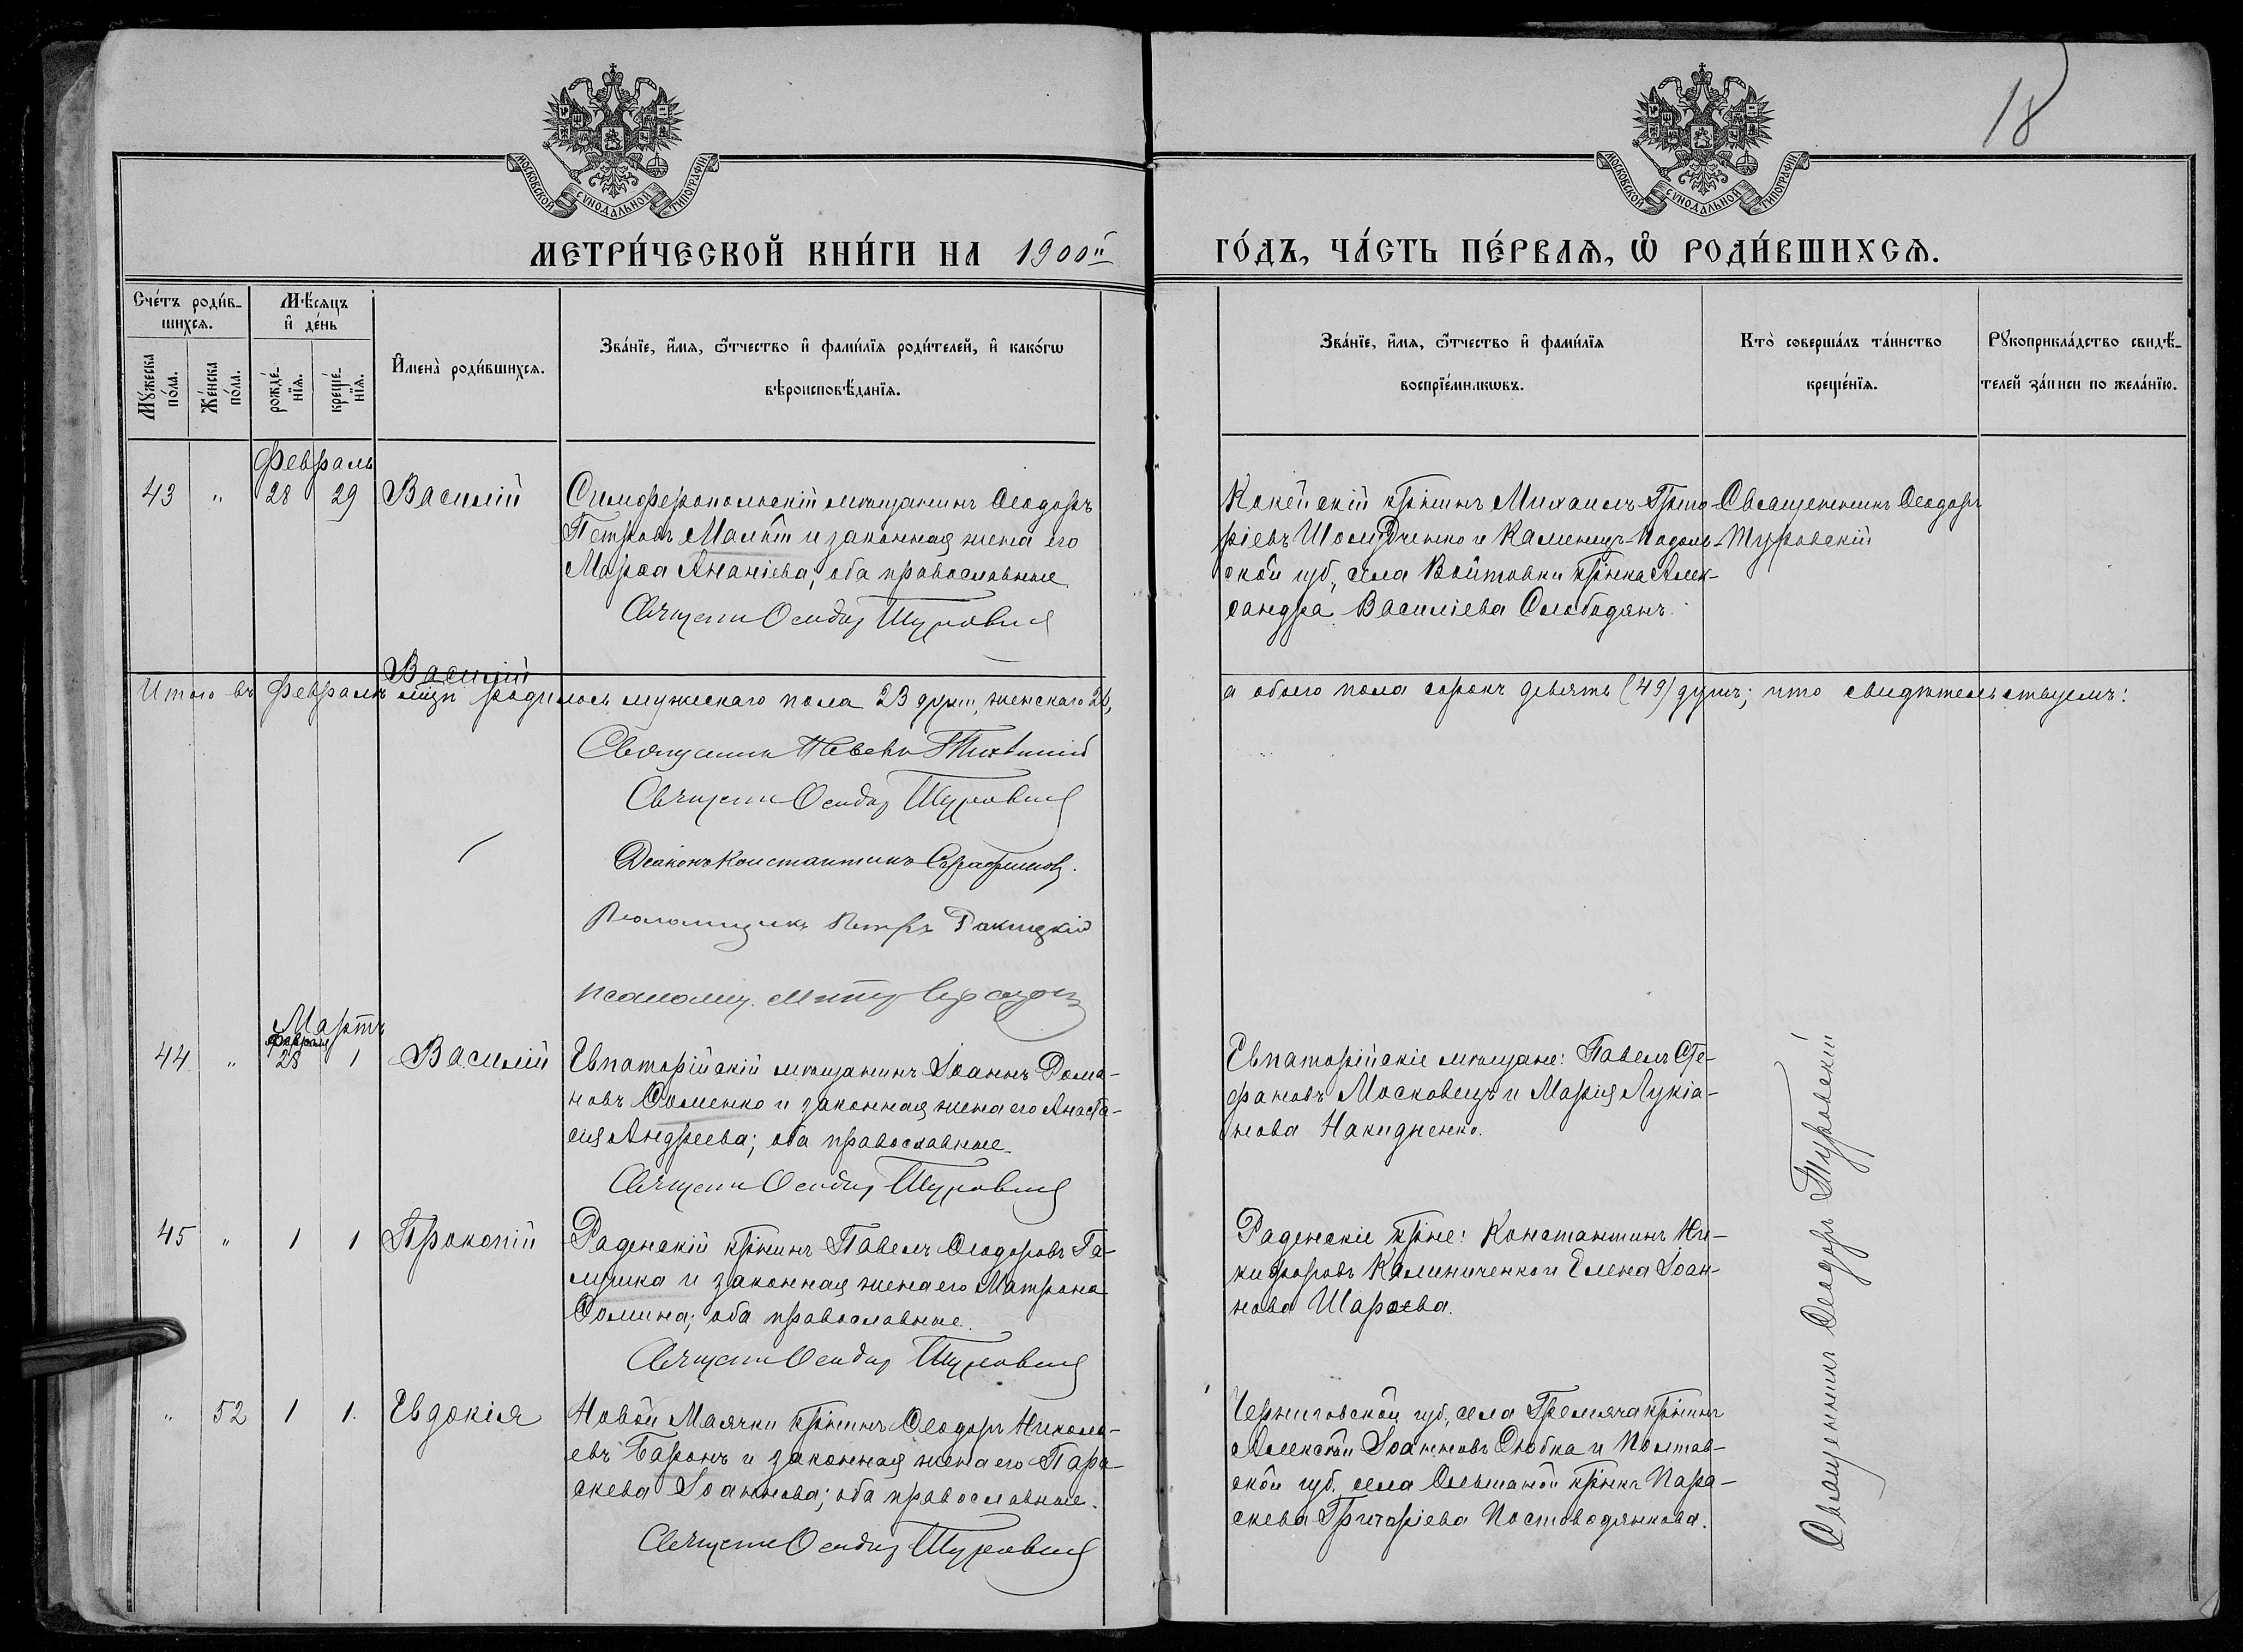 18
МОСКОВСКОЙ СѴНОДАЛЬНОЙ ТИПОГРАФІИ
МОСКОВСКОЙ СѴНОДАЛЬНОЙ ТИПОГРАФІИ
МЕТРИ́ЧЕСКОЙ КНИ́ГИ НА 1900й
ГО́ДЪ, ЧА́СТЬ ПЕ́РВАѦ, Ѡ҆ РОДИ́ВШИХСѦ.
Сче́тъ роди́в-
шихсѧ.
Мѣ́сяцъ
и҆ де́нь
Мꙋ́жеска
по́ла.
Же́нска
по́ла.
рожде́-
нїѧ.
креще́-
нїѧ.
И҆мена̀ роди́вшихсѧ.
Зва́нїе, и҆́мѧ, ѻ҆́тчество и҆ фами́лїѧ роди́телей, и҆ како́гѡ
вѣроисповѣ́данїѧ.
Зва́нїе, и҆́мѧ, ѻ҆́тчество и҆ фами́лїѧ
воспрїе́мникѡвъ.
Кто̀ соверша́лъ та́инство
креще́нїѧ.
Рꙋкоприкла́дство свидѣ́-
телей за́писи по жела́нїю.
Февраль
43 " 28 29 Василій
Симферопольскій мѣщанинъ Ѳеодоръ
Петровъ Малый и законная жена его
Марѳа Ананіева; оба православные.
Священн Ѳеодор Туровскій
Кокейскій крнинъ Михаилъ Григо-
ріевъ Шолудченко и Каменец-Подоль-
ской губ, села Войтовки крнка Алек-
сандра Василіева Слободянъ.
Священникъ Ѳеодоръ
Туровскій
Василій
Итого въ Февралѣ мцѣ родилось мужескаго пола 23 душ, женскаго 26,
а обоего пола сорокъ девять (49) душъ; что свидѣтельствуемъ:
Священникъ Тихвинскій
Священн Ѳеодор Туровскій
Діаконъ Константинъ Серафимовъ.
Псаломщикъ Петръ Ракицкій
Псаломщ.
Мартъ
Февраля
44 " 28 1 Василій
Евпаторійскій мѣщанинъ Іоаннъ Рома-
новъ Ѳоменко и законная жена его Анаста-
сія Андреева; оба православные.
Священн Ѳеодор Туровскій
Евпаторійскіе мѣщане: Павелъ Сте-
фановъ Московецъ и Марія Лукіа-
нова Накидненко.
45 " 1 1 Прокопій
Раденскій крнинъ Павелъ Ѳеодоровъ Га-
лушка и законная жена его Матрона
Ѳомина; оба православные.
Священн Ѳеодор Туровскій
Раденскіе крне: Константинъ Ни-
кифоровъ Калиниченко и Елена Іоан-
нова Шарова.
" 52 1 1. Евдокія
Новой Маячки крнинъ Ѳеодоръ Никола-
евъ Баронъ и законная жена его Пара-
скева Іоаннова; оба православные.
Священн Ѳеодор Туровскій
Черниговской губ., села Гремяча крнинъ
Алексѣй Іоанновъ Скобка и Полтав-
ской губ. села Ольшаной крнка Пара-
скева Григоріева Постоводянкова.
Священникъ Ѳеодоръ Туровскій